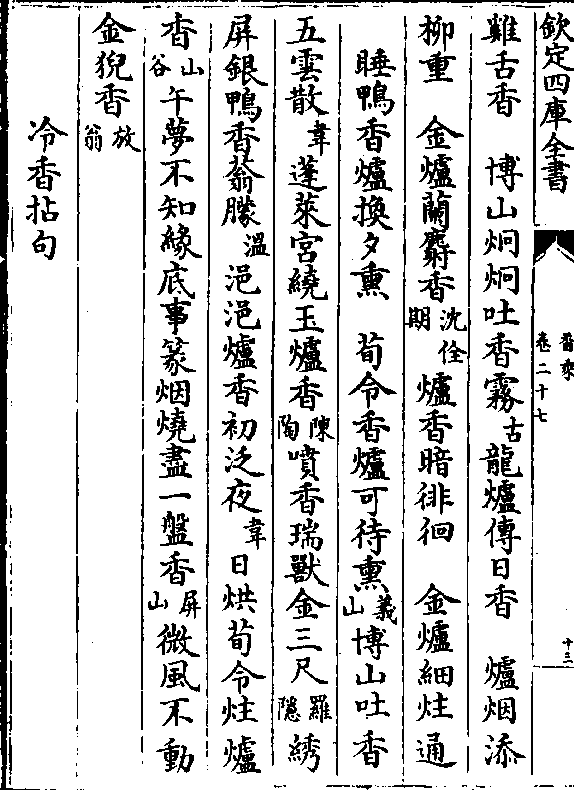 欽定四庫全書
香乘
卷二十七
十三
雞舌香　博山炯炯吐香霧古龍爐傳日香　爐烟添
柳重　金爐蘭麝香沈佺期爐香暗徘徊　金爐細炷通
睡鴨香爐換夕熏　荀令香爐可待熏義山博山吐香
五雲散韋蓬萊宮繞玉爐香陳陶噴香瑞獸金三尺羅隱綉
屏銀鴨香蓊朦溫浥浥爐香初泛夜韋日烘荀令炷爐
香山谷午夢不知緣底事篆烟燒盡一盤香屏山微風不動
金猊香放翁
冷香拈句